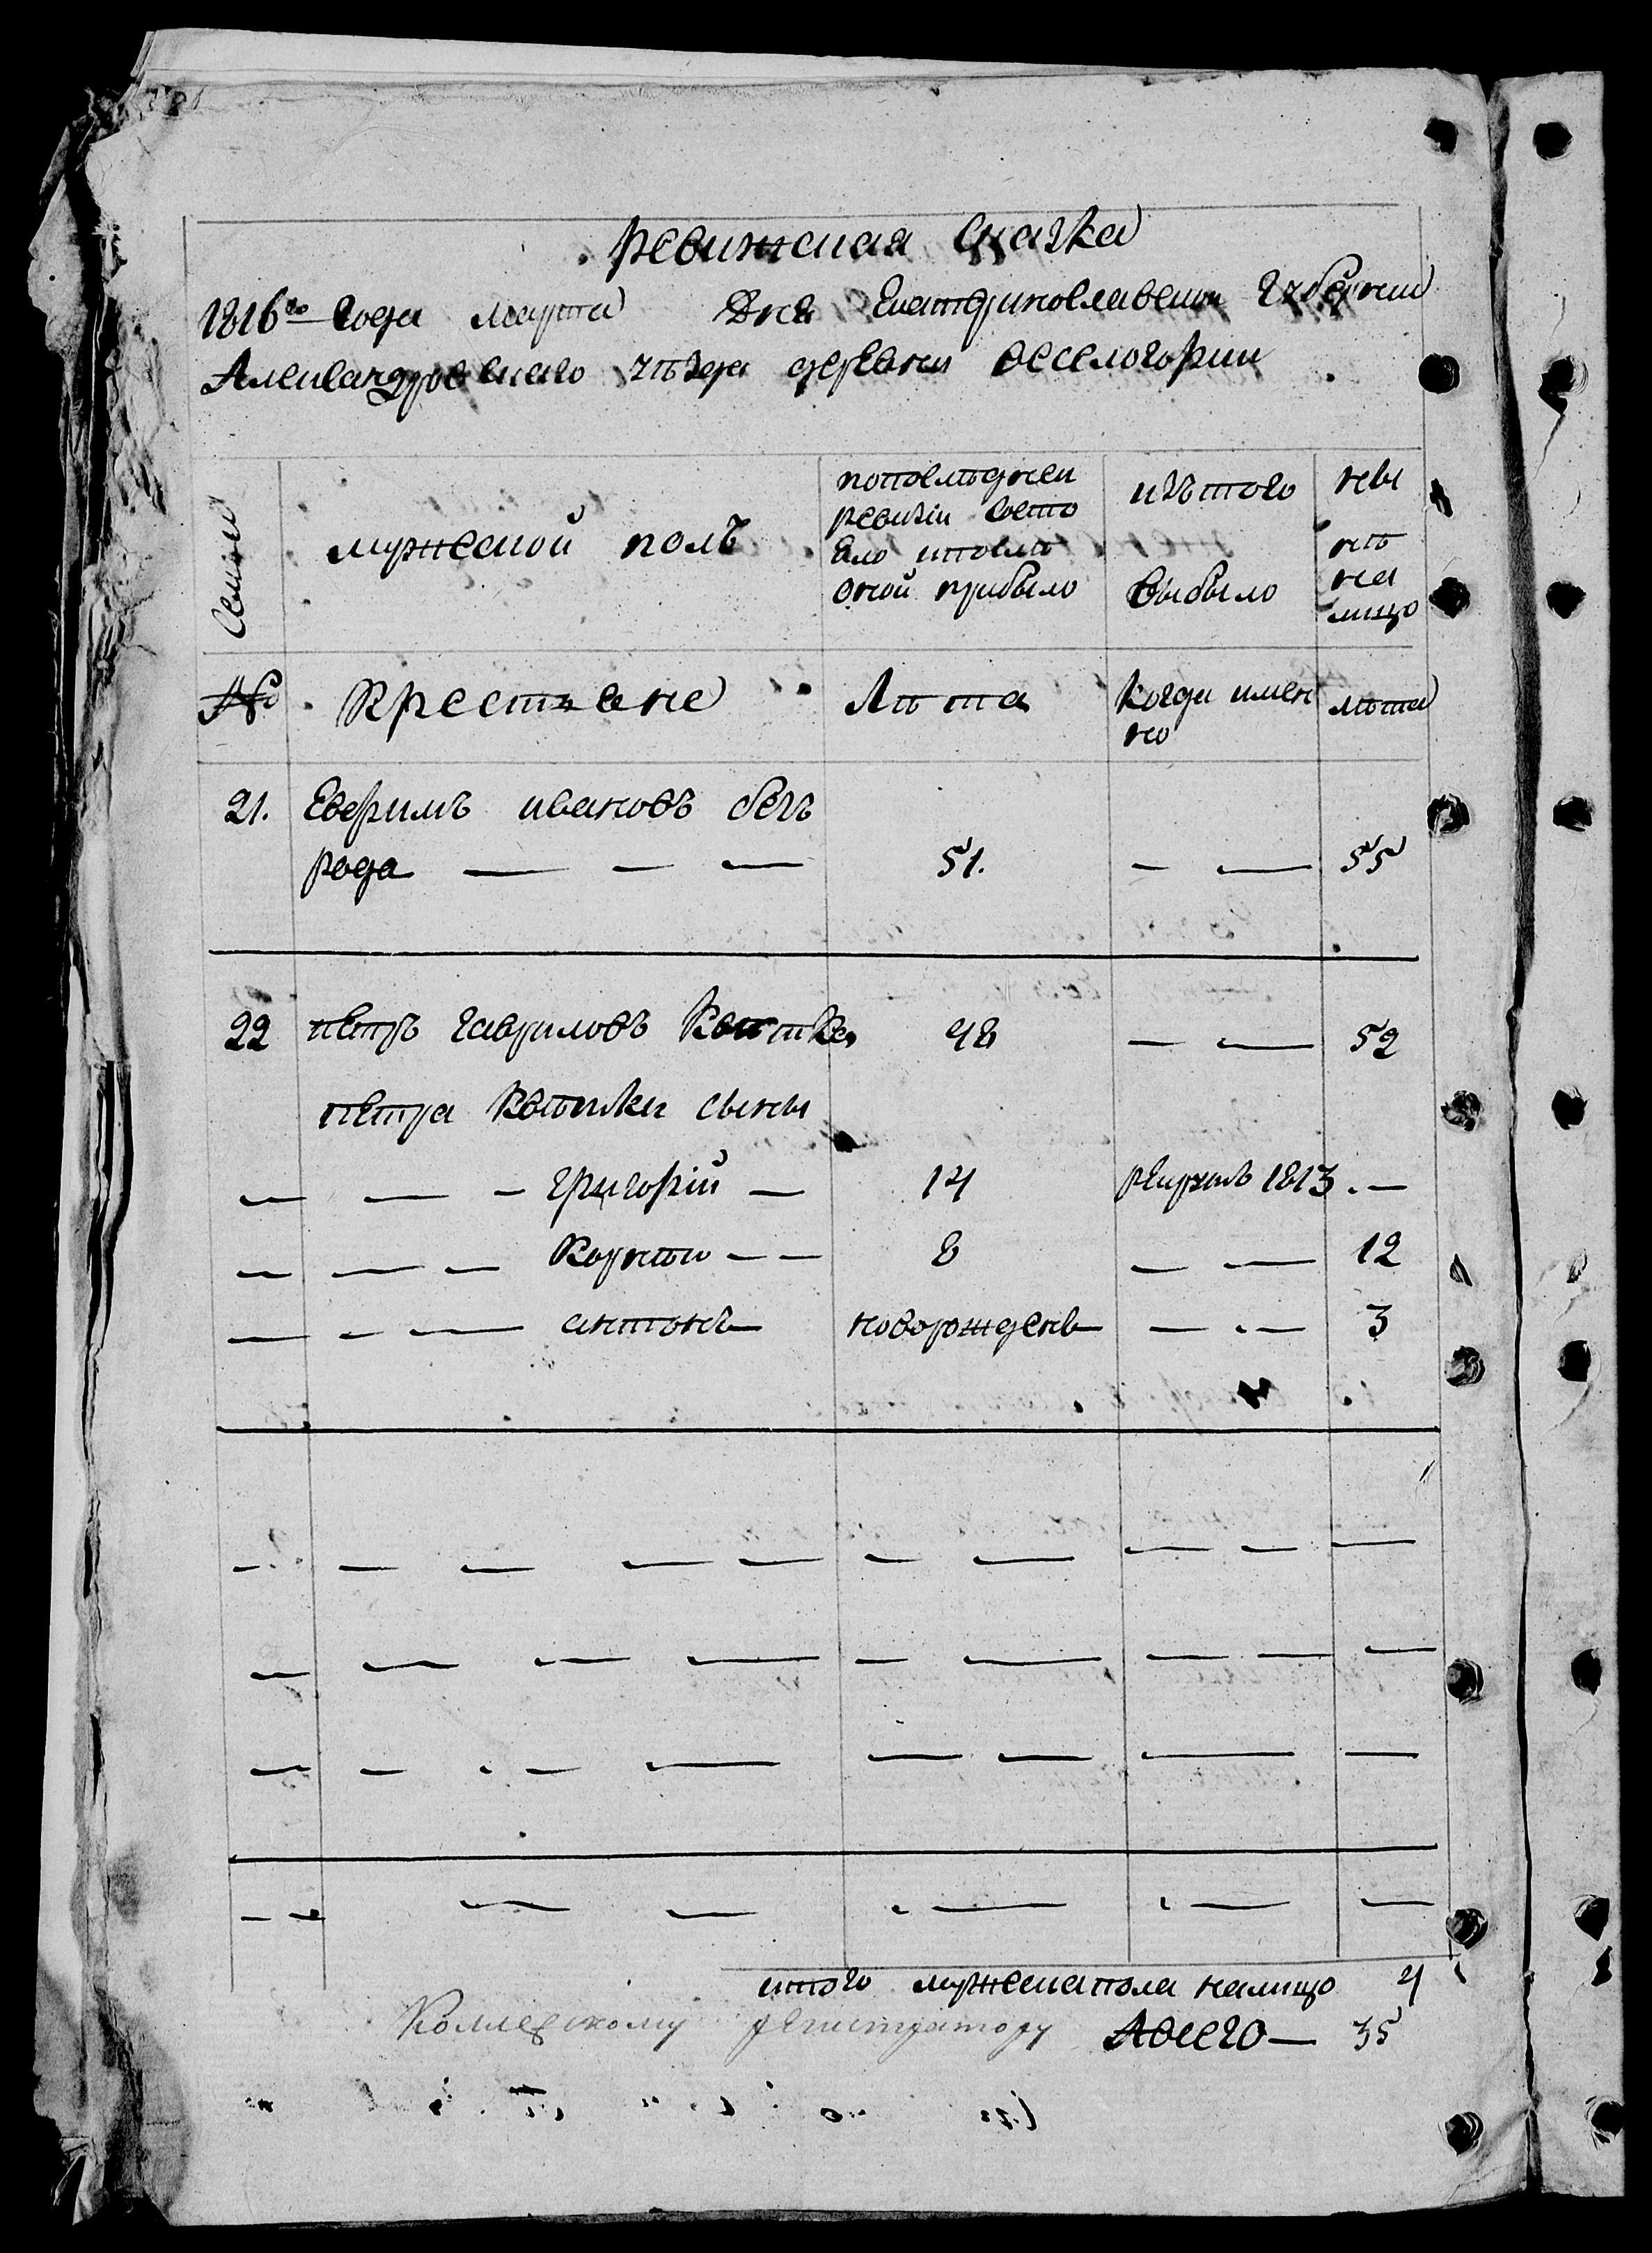 ревижская сказка
1816го года марта Дня Екатеринославской губернии
Александровскаго уѣзда деревни веселогории
Семьи
мужеской полъ
попослѣдней
ревизіи состо
яло ипослѣ
оной прибыло
изъ того
выбыло
ны
нѣ
на
лицо
№
Крестьяне
Лѣта
Когда имен
но
лѣта
21. Еверимъ ивановъ безъ
рода — — — 51. — — 55
22 петръ гавриловъ Квитка 48 — — 52
петра Квитки сыны
— — — григорій — 14 рекрутъ 1813 . —
— — — Корнѣи — — 8 — — 12
— — — антонъ новорожденъ — — 3
итого мужескапола налицо 4
Коллежскому регистратору Авсего — 35